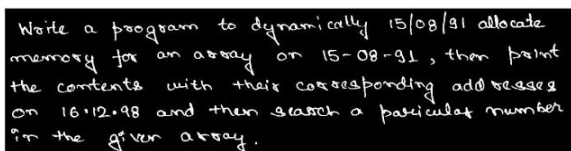 Write a program to dynamically 15/08/91 allocate
memory for an array on 15-08-91, then print
the contents with their corresponding addresses
on 16.12.98 and then search a paticular number
in the given array.